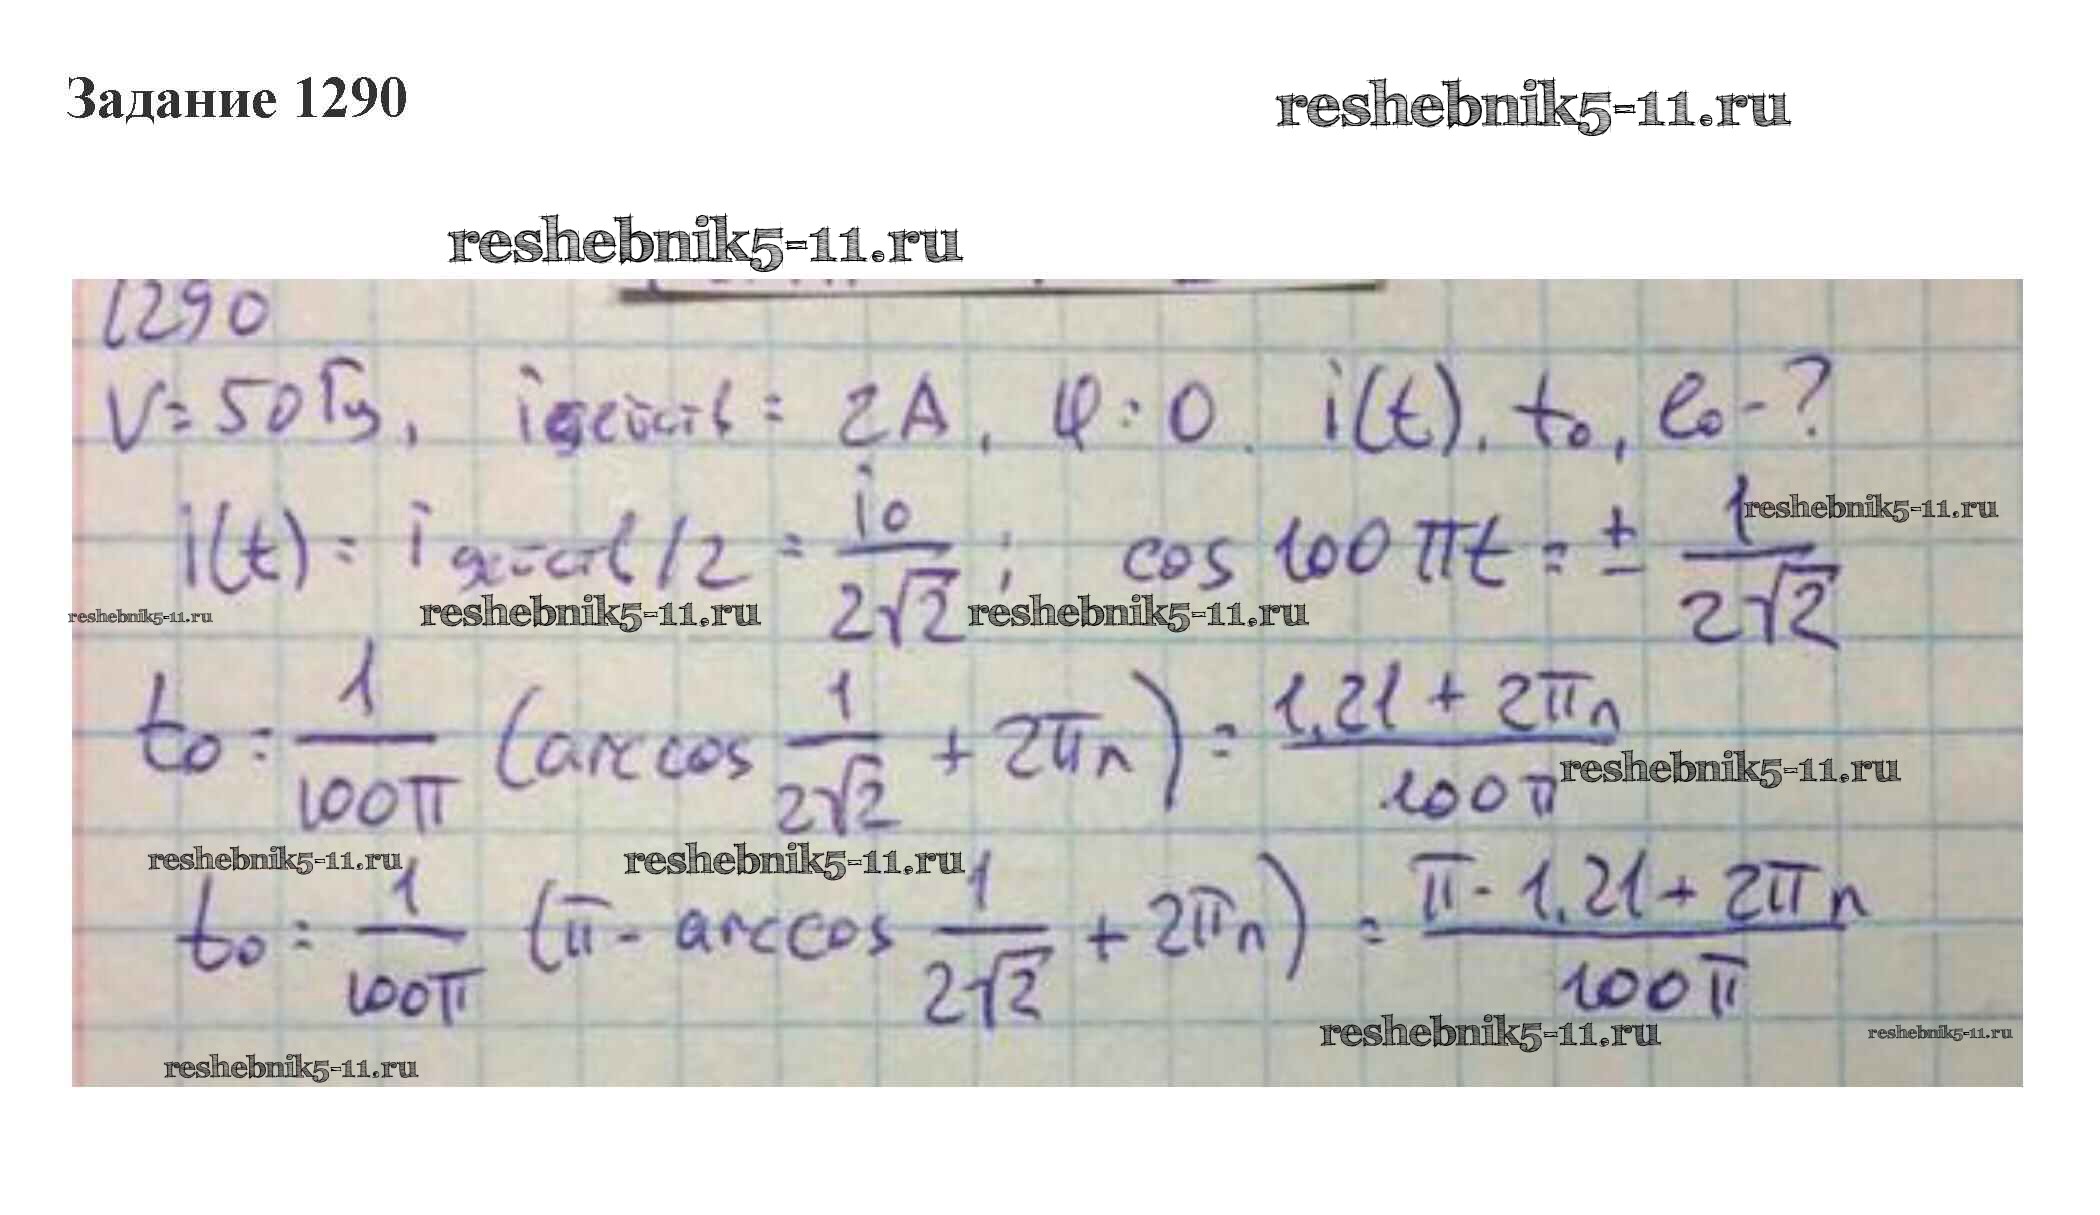 Задание 1290
reshebnik5-11.ru
reshebnik5-11.ru
1290
V = 50 Гц, i действ = 2А, φ = 0. i(t), t₀, e₀ - ?
i(t) = i действ / 2 = i₀ / 2√2 ; cos 100πt = ± 1 / 2√2
reshebnik5-11.ru
reshebnik5-11.ru
reshebnik5-11.ru
reshebnik5-11.ru
t₀ = 1 / 100π (arccos 1 / 2√2 + 2πn) = 1,21 + 2πn / 100π
reshebnik5-11.ru
reshebnik5-11.ru
reshebnik5-11.ru
t₀ = 1 / 100π (π - arccos 1 / 2√2 + 2πn) = π - 1,21 + 2πn / 100π
reshebnik5-11.ru
reshebnik5-11.ru
reshebnik5-11.ru